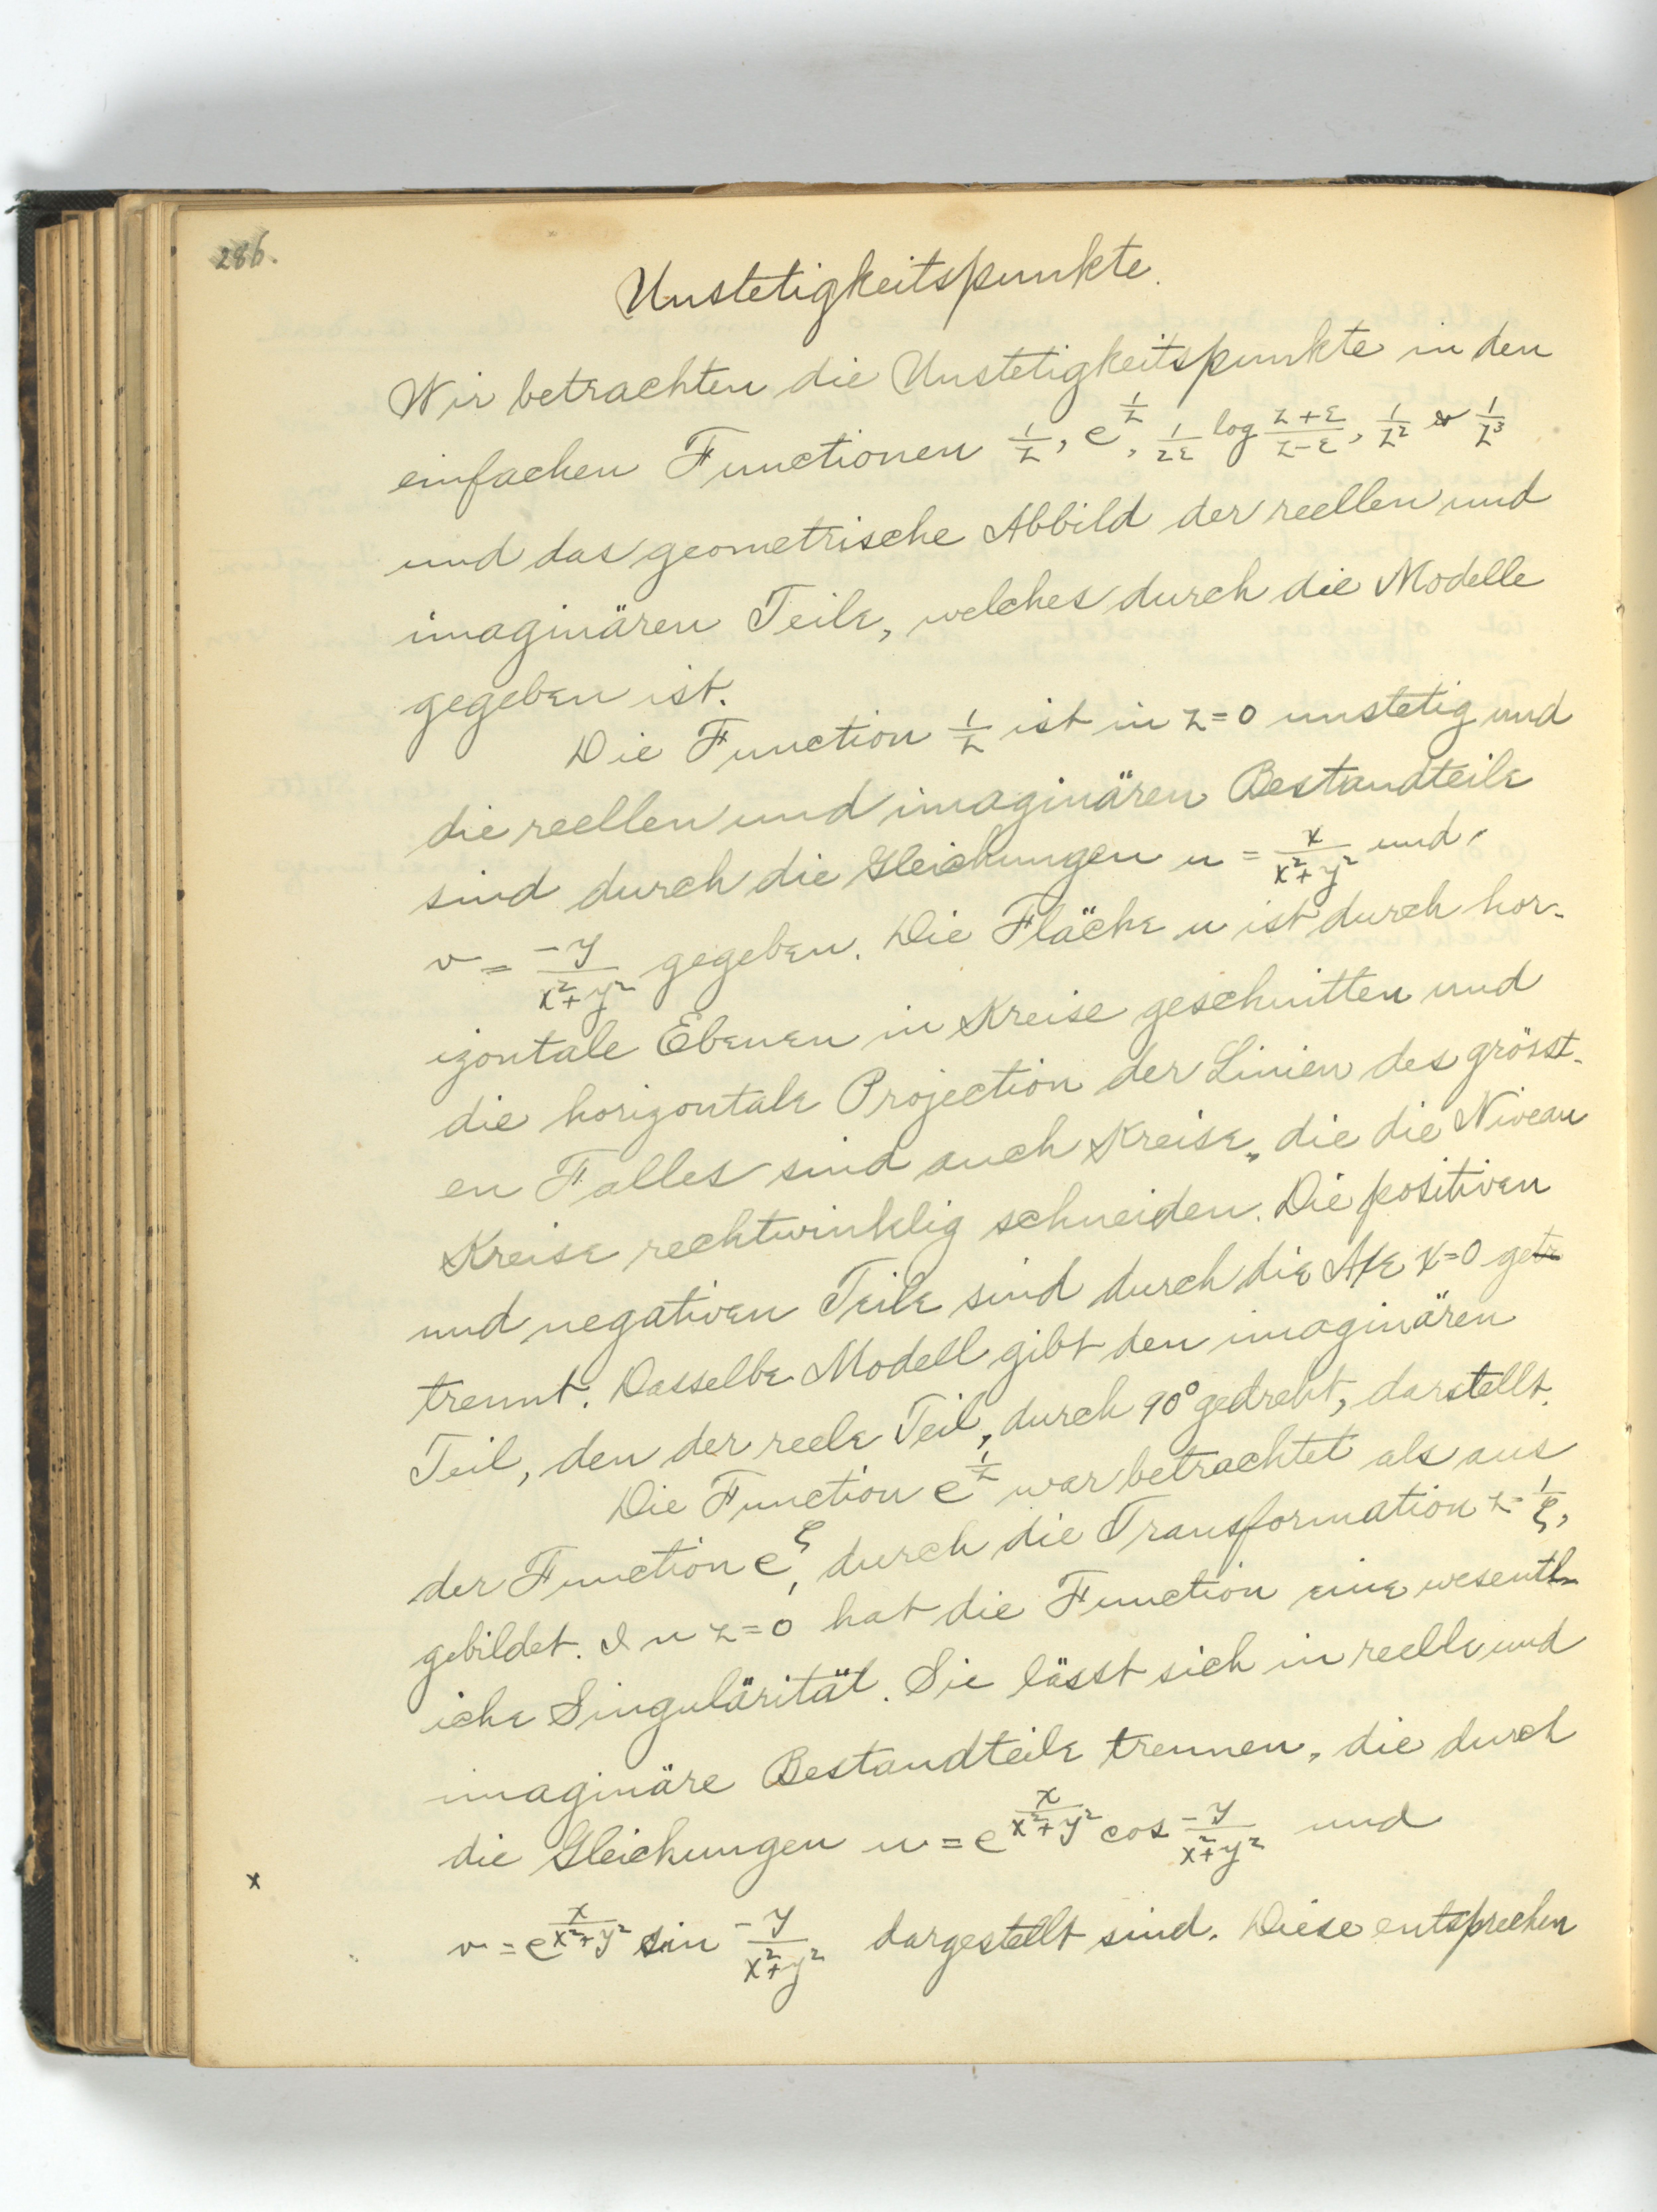 286.
Unstetigkeitspunkte.
Wir betrachten die Unstetigkeitspunkte in den
einfachen Functionen 1/z, e^(1/z), 1/2ε log (z+ε)/(z-ε), 1/z² & 1/z³
und das geometrische Abbild der reellen und
imaginären Teile, welches durch die Modelle
gegeben ist.
Die Function 1/z ist in z=0 unstetig und
die reellen und imaginären Bestandteile
sind durch die Gleichungen u = x/(x²+y²) und
v = -y/(x²+y²) gegeben. Die Fläche u ist durch hor-
izontale Ebenen in Kreise geschnitten und
die horizontale Projection der Linien des grösst-
en Falles sind auch Kreise, die die Niveau
Kreise rechtwinklig schneiden. Die positiven
und negativen Teile sind durch die Axe x=0 getr
trennt. Dasselbe Modell gibt den imaginären
Teil, den der reele Teil, durch 90° gedreht, darstellt.
Die Function e^(1/z) war betrachtet als aus
der Function e^ζ, durch die Transformation z=1/ζ,
gebildet. In z=0 hat die Function eine wesentl-
iche Singulärität. Sie lässt sich in reelle und
imaginäre Bestandteile trennen, die durch
die Gleichungen u = e^(x/(x²+y²)) cos -y/(x²+y²) und
x
v = e^(x/(x²+y²)) sin -y/(x²+y²) dargestellt sind. Diese entsprechen